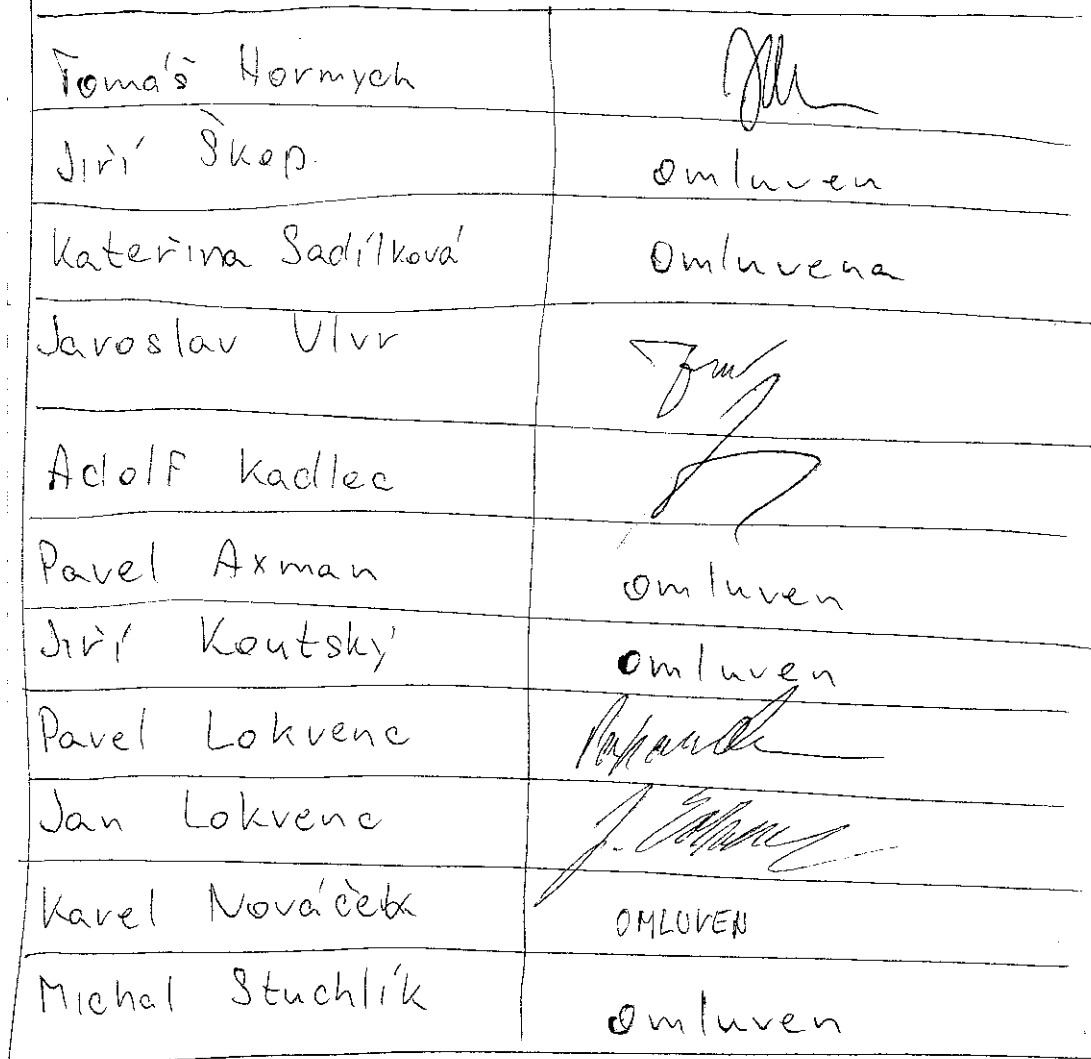 Tomáš Hormych
Jiří Škop.
omluven
Kateřina Sadílková
omluvena
Jaroslav Vlvr
Adolf Kadlec
Pavel Axman
omluven
Jiří Koutský
omluven
Pavel Lokvenc
Jan Lokvenc
Karel Nováček
OMLUVEN
Michal Stuchlík
omluven